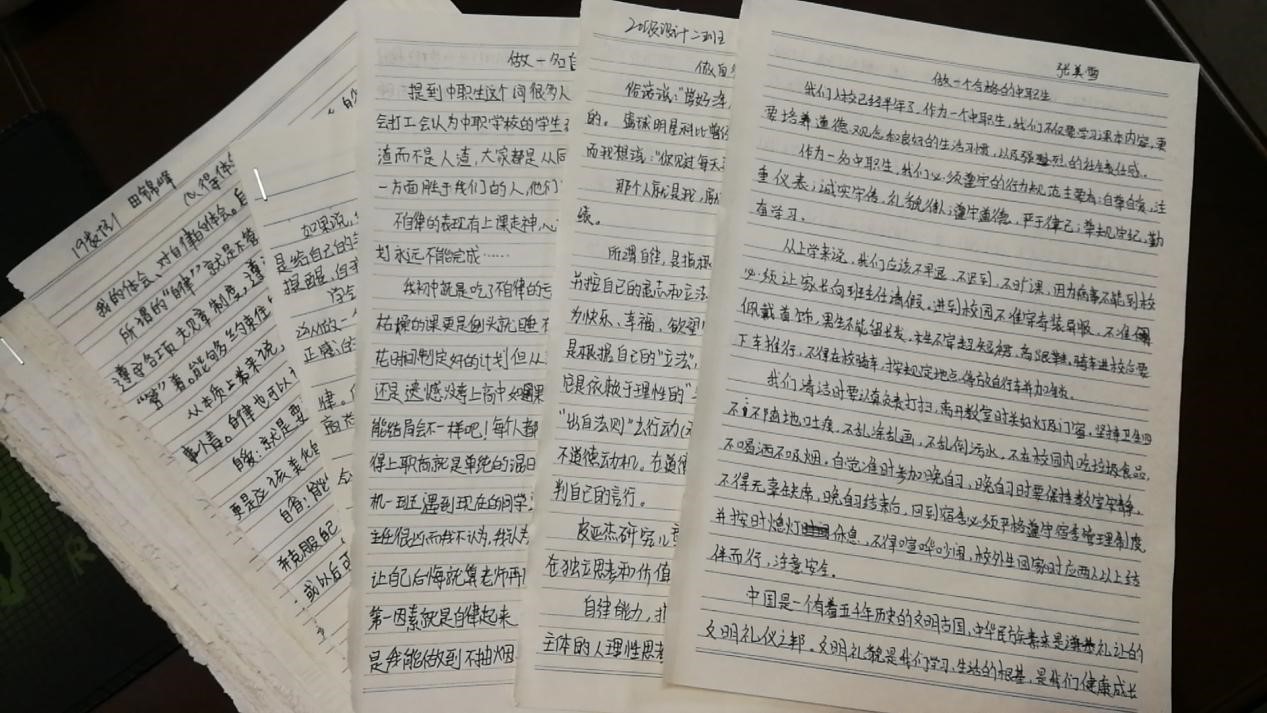 19农机1 田锦峰
心得体
我的体会、对自律的体会。自
所谓的"自律"就是不管
遵守各项克见章制度,遵
"管"着。能够约束住
从本质上来来说
事个者。自律也可以
自爱:就是要
更是应该美化
自省:能
并克服自己
或以后可
如果说,
是给自己的
提醒,但
这从做一个
正感的
律。
做一名自
提到中职生这个词很多人
会打工会认为中职学校的学生
渣而不是人渣,大家都是从同
一方面胜于我们的人,他们
不自律的表现有上课走神,心
划永远不能完成……
我初中就是吃了不自律的亏
枯操的课更是倒头就睡不
花时间制定好的计划但从
还是遗憾没考上高中如果
能结局会不一样吧!每个人都
得上职高就是单纯的混日
机一班遇到现在的同学
主任很凶而我不认为,我认为
让自己后悔就算老师再
第一因素就是自律起来
是我能做到不抽烟
20级设计二班王
做自
俗话说:"曾好
的。篮球明星科比曾
而我想说:"你见过每天
那个人就是我,
续。
所谓自律,是指根
并按自己的意志和立法
为快乐、幸福、欲望
是根据自己的"立法"
总是依赖于理性的"
"出自法则"去行动(
不道德动机。有道德
判自己的言行。
皮亚杰研究儿童
在独立思考和价值
自律能力,
主体的人理性思考
张美雪
做一个合格的中职生
我们入校已经半年了,作为一个中职生,我们不仅要学习课本内容,更
要培养道德观念和良好的生活习惯,以及强烈的社会责任感。
作为一名中职生,我们必须遵守的行为规范主要为:自尊自爱,注
重仪表;诚实守信,礼貌待人;遵守道德,严于律己;尊规守纪,勤
奋学习。
从上学来说,我们应该不早退,不迟到,不旷课,因为病事不能到校
必须让家长向班主任请假,进到校园不准穿奇装异服,不准
佩戴首饰,男生不能留长发,女生不穿超短裙,高跟鞋,骑车进校合要
下车推行,不得在校骑车,按规定地点停放自行车并加锁。
我们清洁时要认真负责打扫,离开教室时关好灯及门窗,坚持卫生四
不:不随地吐痰,不乱涂乱画,不乱倒污水,不在校园内吃垃圾食品,
不喝酒不吸烟,自觉准时参加晚自习,晚自习时要保持教室安静,
不得无辜缺席,晚自习结束后,回到宿舍必须严格遵守宿舍管理制度,
并按时熄灯休息,不得喧哗吵闹,校外生回家时应两人以上结
伴而行,注意安全。
中国是一个有着五千年历史的文明古国,中华民族素来是谦恭礼让的
文明礼仪之邦。文明礼貌是我们学习,生活的根基,是我们健康成长